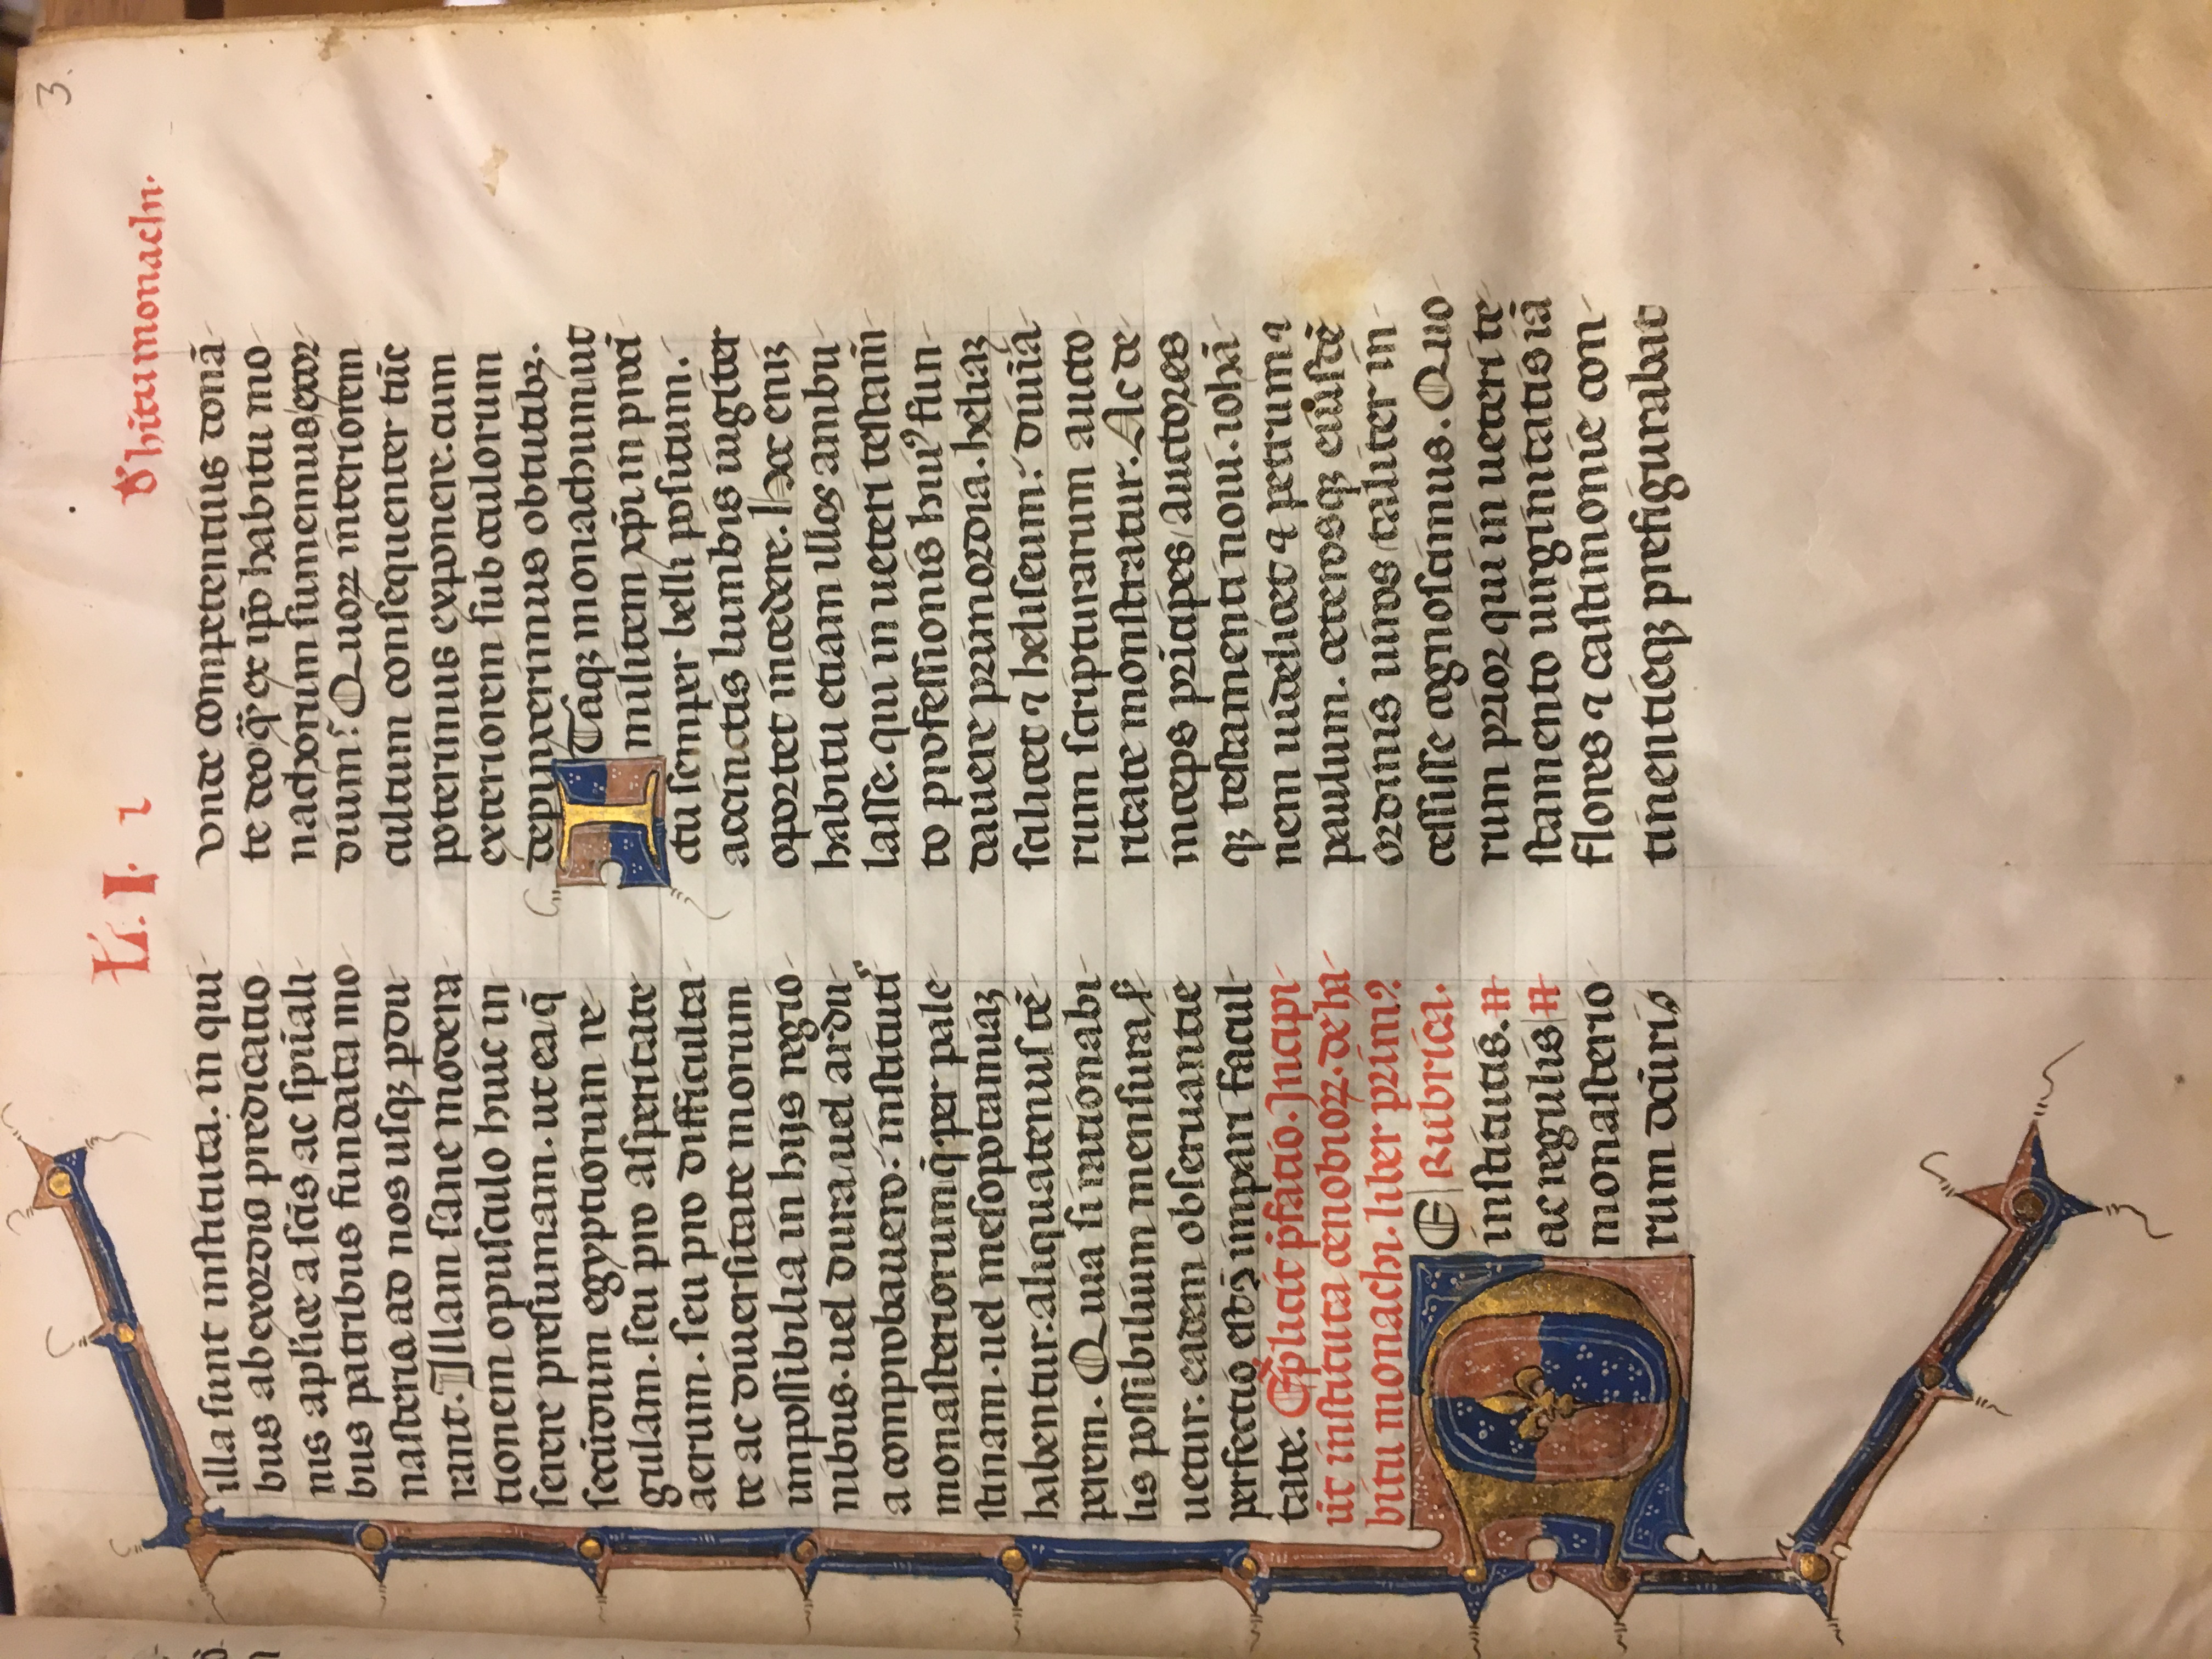 3.
L. I. 1
D' hitu monachi.
illa sunt instituta. in qui
bus ab exordio predicatio
nis aplice a scis ac spiali
bus patribus fundata mo
nasteria ad nos usqꝫ ꝑdu
rant. Illam sane modera
tionem opusculo huic in
serere presumam. ut ea q̄
secūdum egyptiorum re
gulam. seu pro asperitate
aerum. seu pro difficulta
te ac diuersitate morum
impossibilia in hijs regio
nibus. uel dura uel ardu
a comprobauero. institutis
monasteriorum q̄ per pale
stinam. uel mesopotamiaꝫ
habentur. aliquatenus tē
perem. Quia si rationabi
lis possibilium mensura ẜ
uetur. eadem obseruantie
perfectio est ī impari facul
tate. Eẋplicit p̄fatio. Incipi
ūt instituta cenobioꝝ. de ha
bitu monachi. liber primꝰ
E Rubrica.
institutis.
ac regulis
monasterio
rum dc̄uris
vnde competentius donā
te deo q̄ꝫ ex ip̄o habitu mo
nachorum sumemus exor
dium. Quoꝝ interiorem
cultum consequenter tūc
poterimus exponere. cum
exteriorem sub oculorum
depinxerimus obtutibꝫ.
I Taqꝫ monachum ut
militem xp̄i in proci
ctu semper belli positum.
accinctis lumbis iugiter
oportet incedere. hoc eniꝫ
habitu etiam illos ambu
lasse. qui in ueteri testam̄
to professionis huiꝰ fun
dauere primordia. heliaꝫ
scilicet ⁊ heliseum. diuīa
rum scripturarum aucto
ritate monstratur. Ac de
inceps prīcipes auctores
qꝫ testamenti noui. iohā
nem uidelicet ⁊ petrum ⁊
paulum. ceterosqꝫ eiusdē
ordinis uiros taliter in
cessisse cognoscimus. Quo
rum prior qui in ueteri te
stamento uirginitatis iā
flores ⁊ castimonie con
tinentieqꝫ prefigurabat